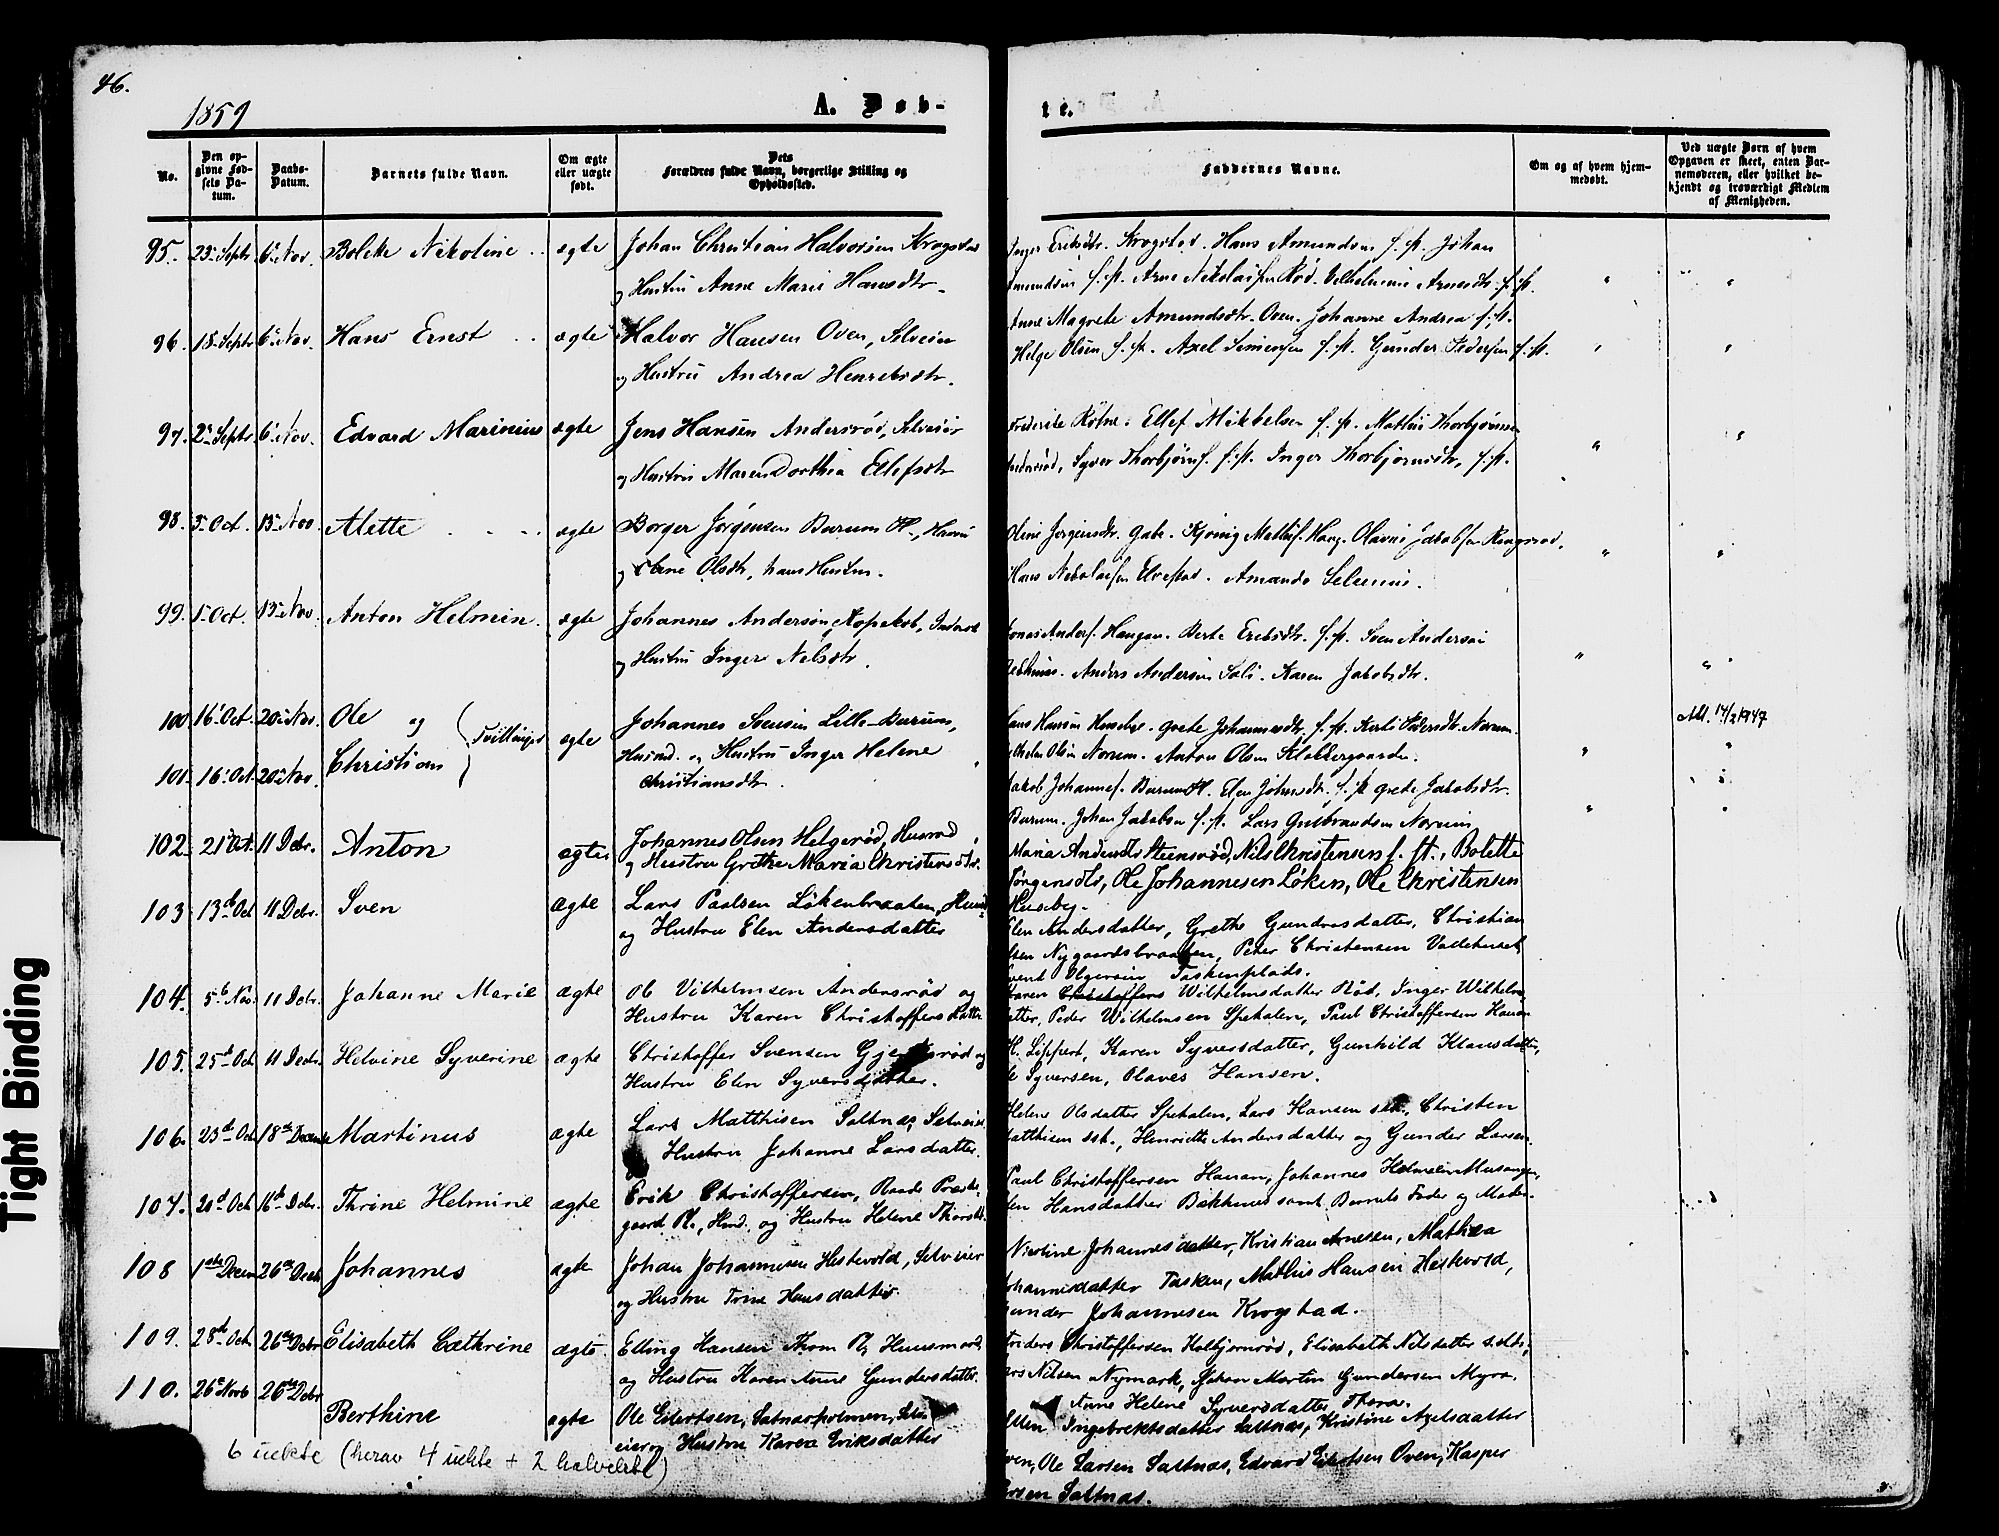 46.
1859
A. Døb-
te.
No.
Den op-
givne Fød-
sels Da-
tum.
Daabs-
Datum.
Barnets fulde Navn.
Om ægte
eller uægte
født.
Dets
Forældres fulde Navn, borgerlige Stilling og
Opholdssted.
Faddernes Navne.
Om og af hvem hjem-
medøbt.
Ved uægte Børn af hvem
Opgaven er skeet, enten Bar-
nemoderen, eller hvilket be-
kjendt og troværdigt Medlem
af Menigheden.
95. 23 Septr 6 Nov. Bolette Nikoline ægte Johan Christian Halvorsen Krogstad
og Hustru Anne Marie Hansdtr.
Inger Eriksdtr. Krogstad. Hans Amundsen f. st. Johan
Amundsen f. st. Arne Nikolaisen Rød. Vilhelmine Arnesdtr. f. st.
96. 18 Septr 6 Nov. Hans Ernst ægte Halvor Hansen Oven, Selveier
og Hustru Andrea Henriksdtr.
Anne Magrete Amundsdtr. Oven. Johanne Andrea f. st.
Helge Olsen f. st. Axel Simensen f. st. Gunder Pedersen f. st.
97. 2 Septr 6 Nov. Edvard Marinius ægte Jens Hansen Andersrød, Selveier
og Hustru Maren Dorthia Ellefsdtr
Ellef Mikkelsen f. st. Mathis Thorbjørnsen
Andersrød, Syver Thorbjørns. f. st. Inger Thorbjørnsdtr. f. st.
98. 3 Oct. 13 Nov. Alette ægte Borger Jørgensen Burum Pl.,
og Olsdtr, hans Hustru.
Oline Jørgensdtr. Olavus Jakobsen
Hans Nikolaisen Elvestad. Amanda
99. 1 Oct. 13 Nov. Anton Helmin. ægte Johannes Andersen
og Hustru Inger Nilsdtr.
Jonas Anders. Haugen. Berte Eriksdtr. f. st. Sven Andersen
Anders Andersen Karen Jakobsdtr.
100 16 Oct. 20 Nov. Ole og
Christian Tvillinger ægte Johannes Svensen Lille-Burum,
Husmd. og Hustru Inger Helene
Christiansdtr.
101. 16 Oct. 20 Nov.
Hans Hansen Grete Johannesdtr. f. st. Norum.
Olsen Norum. Anton Olsen Klokkergaarden.
Jakob Johannes. Burum Pl. Elen Johnsdtr. f. st. Grete Jakobsdtr.
Burum. Johan Jakobsen f. st. Lars Gulbrandsen Norum
102. 21 Oct. 11 Debr. Anton ægte Johannes Olsen Helgerød, Husmd
og Hustru Grethe Maria Christensdtr.
Maria Andersdtr Steensrød, Nils Christensen f. st., Bolette
Jørgensdtr, Ole Johannesen Løken, Ole Christensen
Huseby.
103 13de Oct 11 Debr. Sven ægte Lars Paalsen Løkenbraaten,
og Hustru Elen Andersdatter
Elen Andersdatter, Grethe Gundersdatter, Christian
Olsen Nygaardsbraaten, Peter Christensen
Taskenplads.
104. 5te Nov. 11 Debr. Johanne Marie ægte Ole Vilhelmsen Andersrød og
Hustru Karen Christoffersdatter
Karen Christoffers Wilhelmsdatter Rød, Inger Wilhelms
datter, Peder Wilhelmsen Spetalen, Paul Christoffersen Hauan
105. 25de Oct 11 Decbr. Helvine Syverine ægte Christoffer Svensen og
Hustru Elen Syversdatter.
H. Lippert, Karen Syversdatter, Gunhild Klausdatter,
Syversen, Olaves Hansen.
106. 23de Oct 18de Decembr Martinus ægte Lars Matthisen Saltnæs, Selveier
Hustru Johanne Larsdatter.
Helene Olsdatter Spetalen, Lars Hansen sst., Christen
Matthisen sst., Henriette Andersdatter og Gunder Larsen.
107. 20de Oct 16de Debr. Thrine Helmine ægte Erik Christoffersen, Raade Præste-
gaard Pl., Hmd. og Hustru Helene Thorsdtr.
Paul Christoffersen Hauan, Johannes
Hansdatter Bakkehus samt Barnets Fader og Moder.
108 1ste Decem 26de Decb Johannes ægte Johan Johannesen Hestevold, Selveier
og Hustru Trine Hansdatter
Nicoline Johannesdatter, Kristian Arnesen, Mathea
Johannesdatter Tasken, Mathis Hansen Hestevold,
Gunder Johannesen Krogstad.
109. 28de Oct. 26de Debr Elisabeth Cathrine ægte Elling Hansen Thom Pl, Huusmand,
og Hustru Karen Anne Gundersdatter.
Christoffersen Kolbjørnrød, Elisabeth Nilsdatter
Nilsen Nymark, Johan Martin Gundersen Myra.
Anne Helene Syversdatter,
110. 26de Novb 26de Debr Berthine ægte Ole Eilertsen, Saltnæsholmen, Selv-
eier og Hustru Karen Eriksdatter
Ellen Ingebretsdatter Saltnæs, Kristine Axelsdatter
Oven, Ole Larsen Saltnæs, Edvard Eilertsen Oven, Kasper
Larsen Saltnæs.
Att. 14/2 1947
6 uekte (herav 4 uekte + 2 halvekte)
Tight Binding